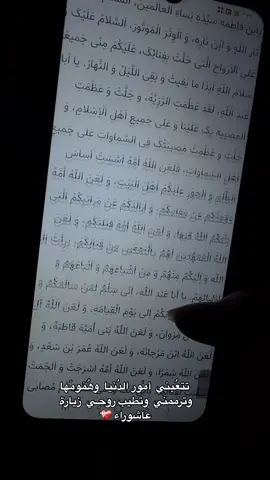 يَابْنَ فاطِمَةَ سَيِّدَةِ نِساءِ العالَمينَ، السَّلامُ
ثارَ اللهِ وَ ابْنَ ثارِهِ، وَ الوِتْرَ المَوْتُورَ، السَّلامُ عَلَيْكَ وَ
عَلَى الأَرْواحِ الَّتي حَلَّتْ بِفِنائِكَ، عَلَيْكُمْ مِنّي جَميعاً
سَلامُ اللهِ أَبَداً ما بَقيتُ وَ بَقِيَ اللَّيْلُ وَ النَّهارُ. يا أَبا
عَبْدِ اللهِ، لَقَدْ عَظُمَتِ الرَّزِيَّةُ، وَ جَلَّتْ وَ عَظُمَتِ
المُصيبَةُ بِكَ عَلَيْنا وَ عَلى جَميعِ أَهْلِ الإِسْلامِ، وَ
جَلَّتْ وَ عَظُمَتْ مُصيبَتُكَ فِي السَّماواتِ عَلى جَميعِ
أَهْلِ السَّماواتِ، فَلَعَنَ اللهُ أُمَّةً أَسَّسَتْ أَساسَ
الظُّلْمِ وَ الجَوْرِ عَلَيْكُمْ أَهْلَ البَيْتِ، وَ لَعَنَ اللهُ أُمَّةً
دَفَعَتْكُمْ عَنْ مَقامِكُمْ، وَ أَزالَتْكُمْ عَنْ مَراتِبِكُمُ الَّتي
رَتَّبَكُمُ اللهُ فيها، وَ لَعَنَ اللهُ أُمَّةً قَتَلَتْكُمْ، وَ لَعَنَ
اللهُ المُمَهِّدينَ لَهُمْ بِالتَّمْكينِ مِنْ قِتالِكُمْ، بَرِئْتُ إِلَى
اللهِ وَ إِلَيْكُمْ مِنْهُمْ وَ مِنْ أَشْياعِهِمْ وَ أَتْباعِهِمْ وَ
أَوْلِيائِهِمْ. يا أَبا عَبْدِ اللهِ، إِنّي سِلْمٌ لِمَنْ سالَمَكُمْ وَ
إِلى يَوْمِ القِيامَةِ، وَ لَعَنَ اللهُ آلَ
مَرْوانَ، وَ لَعَنَ اللهُ بَني أُمَيَّةَ قاطِبَةً، وَ
لَعَنَ اللهُ ابْنَ مَرْجانَةَ، وَ لَعَنَ اللهُ عُمَرَ بْنَ سَعْدٍ، وَ
لَعَنَ اللهُ شِمْراً، وَ لَعَنَ اللهُ أُمَّةً أَسْرَجَتْ وَ أَلْجَمَتْ
مُصابي
تتعْبني أمُور الدُنيا وهُمُومُها
وترممُني وتطيّب رُوحي زيارة
عاشُوراء ❤️‍🩹